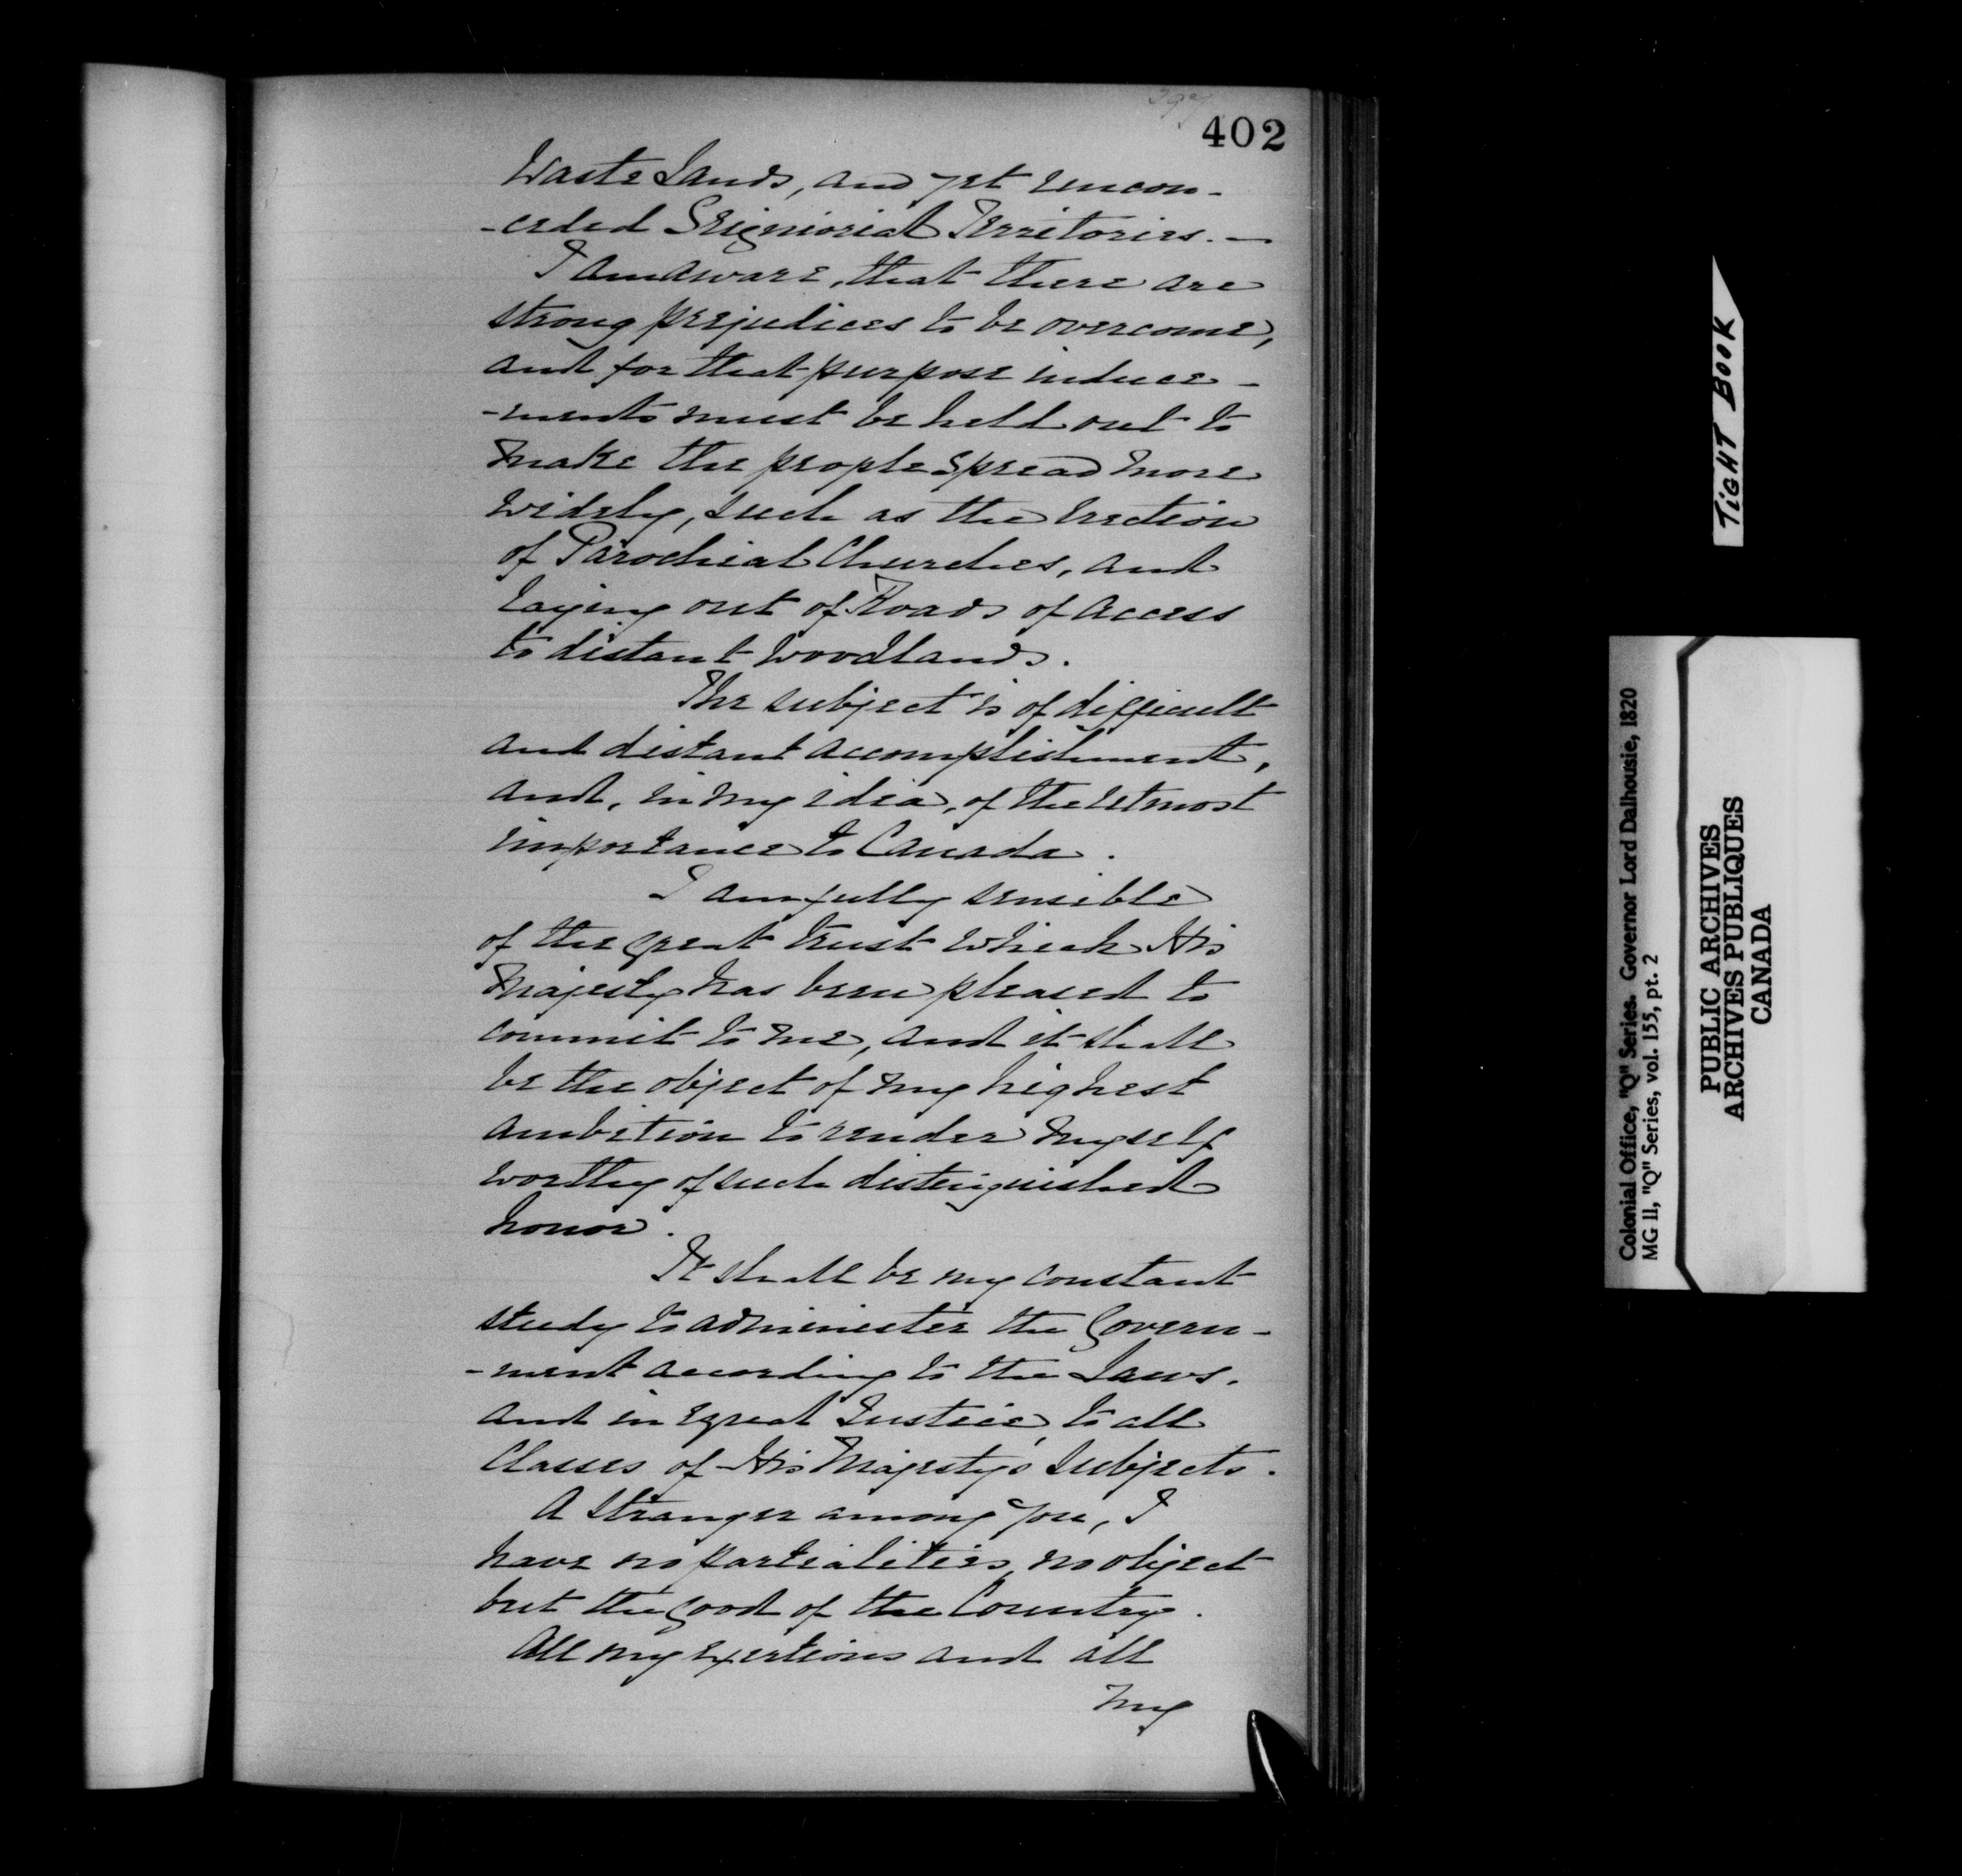 402
Waste Lands, and yet uncon-
-ceded Seigniorial Territories. —
I am aware, that there are
strong prejudices to be overcome,
and for that purpose induce-
-ments must be held out to
make the people spread more
widely, such as the erection
of Parochial Churches, and
laying out of Roads of access
to distant woodlands.
The subject is of difficult
and distant accomplishment,
and, in my idea, of the utmost
importance to Canada.
I am fully sensible
of the great trust which His
Majesty has been pleased to
commit to me, and it shall
be the object of my highest
ambition to render myself
worthy of such distinguished
honor.
It shall be my constant
study to administer the Govern-
-ment according to the Laws,
and in equal Justice, to all
Classes of His Majesty's Subjects.
A Stranger among you, I
have no partialities, no object
but the good of the Country.
All my exertions and all
my
TIGHT BOOK
Colonial Office, "Q" Series. Governor Lord Dalhousie, 1820
MG 11, "Q" Series, vol. 155, pt. 2
PUBLIC ARCHIVES
ARCHIVES PUBLIQUES
CANADA